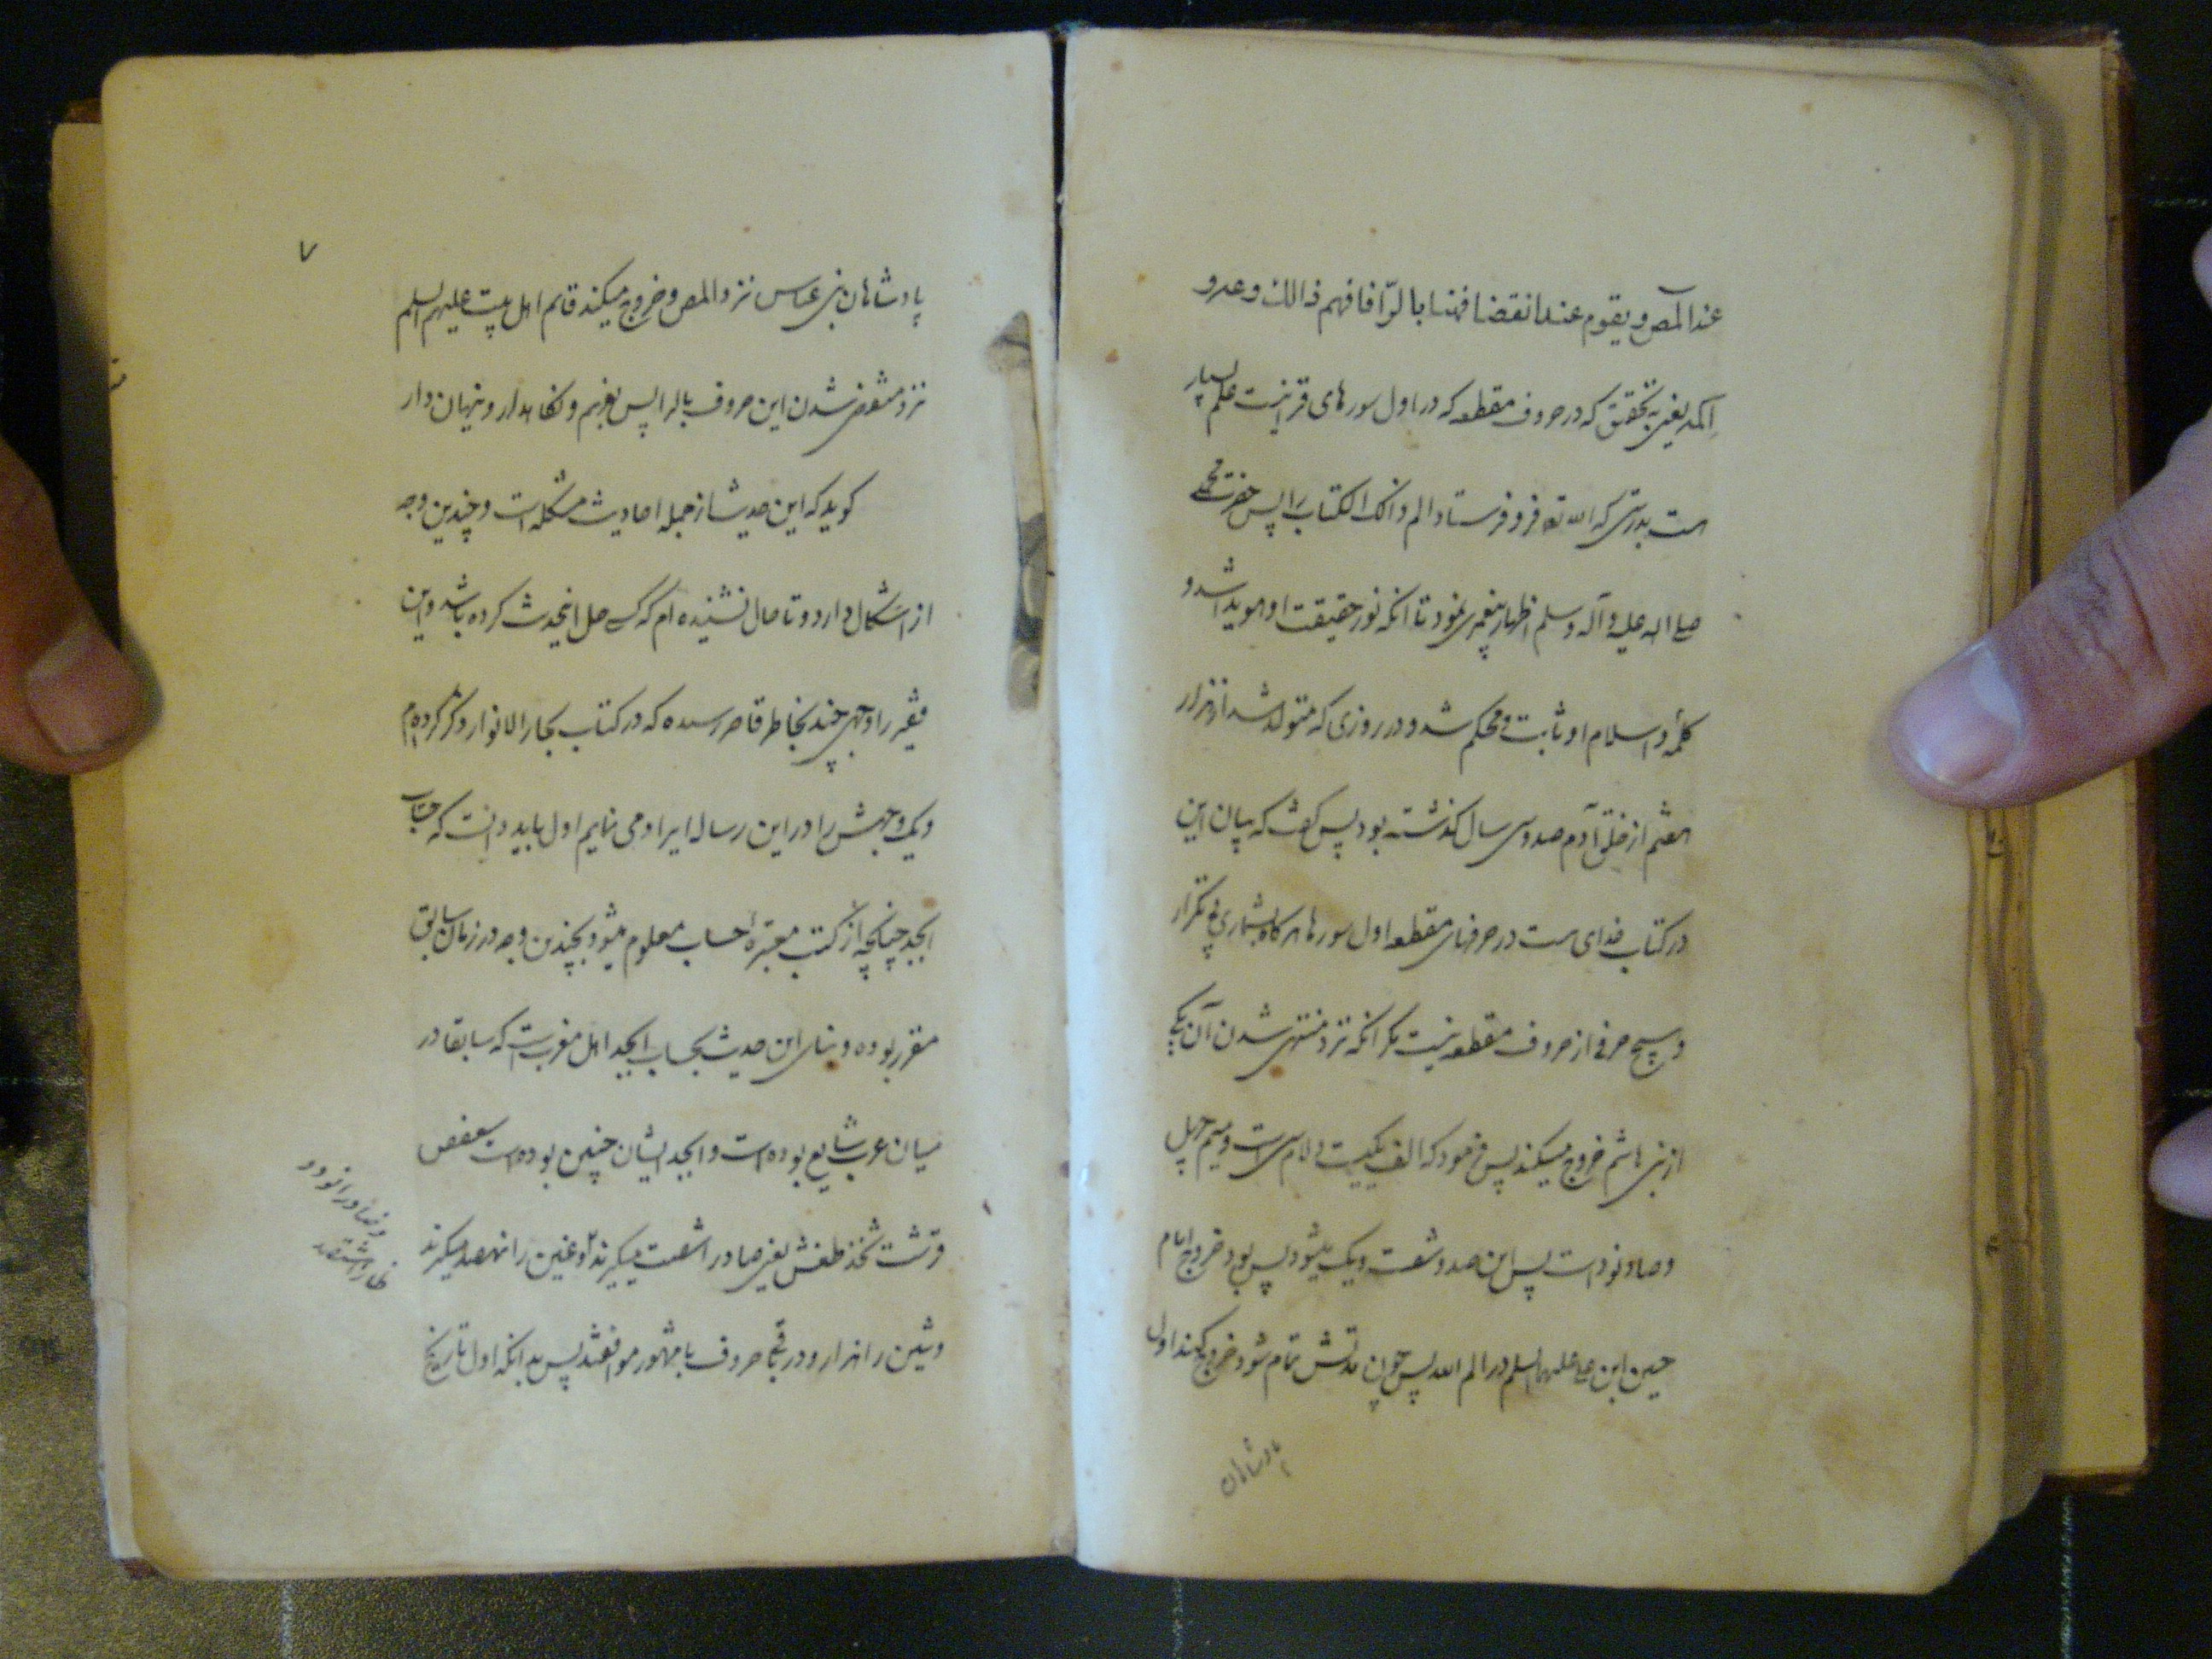 عند المص و يقوم عند انقضائها بالرا فافهم ذالك وعه و
اكتمه يعنى بتحقيق كه در حروف مقطعه كه در اول سورهاى قرانيست علم بسيار
هست بدرستى كه الله تع فرو فرستاد الم ذالك الكتاب را پس حضرت محمد
صلى اله عليه وآله وسلم اظهار پيغمبرى نمود تا انكه نور حقيقت او هويدا شد و
كلمهٔ اسلام او ثابت و محكم شد و در روزى كه متولد شد از هزار
هفتم از خلق آدم صد و سى سال كذشته بود پس كفت كه بيان اين
در كتاب خداى هست در حرفهاى مقطعه اول سورها هركاه بشمارى بى تكرار
و هيچ حرفى از حروف مقطعه نيست مكر انكه نزد منتهى شدن آن يكى
از بنى هاشم خروج ميكند پس فرمود كه الف يكيست و لام سى است و ميم چهل
و صاد نود است پس اين صد و شصت و يك ميشود پس بود خروج امام
حسين ابن على عليهما السلم در الم الله پس چون مدتش تمام شود خروج كند اول
پادشاهان
٧
پادشاهان بنى عباس نزد المص و خروج ميكند قائم اهل بيت عليهم السلم
نزد منقضى شدن اين حروف بالرا پس بفهم و نكاهدار و پنهان دار
كويد كه اين حديث از جمله احاديث مشكله است و چندين وجه
از اشكال دارد و تا حال نشنيده ام كه كسى حل اينحديث كرده باشد و اين
فقير را وجهى چند بخاطر قاصر رسيده كه در كتاب بحار الانوار ذكر كرده ام
و يك وجهش را در اين رساله ايراد مى نمايم اول بايد دانست كه حساب
ابجد چنانچه از كتب معتبرهٔ حساب معلوم ميشود بچندين وجه در زمان سابق
مقرر بوده و بناى اين حديث بحساب ابجد اهل مغربست كه سابقا در
ميان عرب شايع بوده است و ابجد ايشان چنين بوده است سعفص
قرشت ثخذ ظغش يعنى صاد را شصت ميكيرند و غين را نهصد ميكيرند
و ضاد را نود و
ظا را هشتصد
و شين را هزار و در بقيهٔ حروف با مشهور موافقند پس بدانكه اول تاريخ